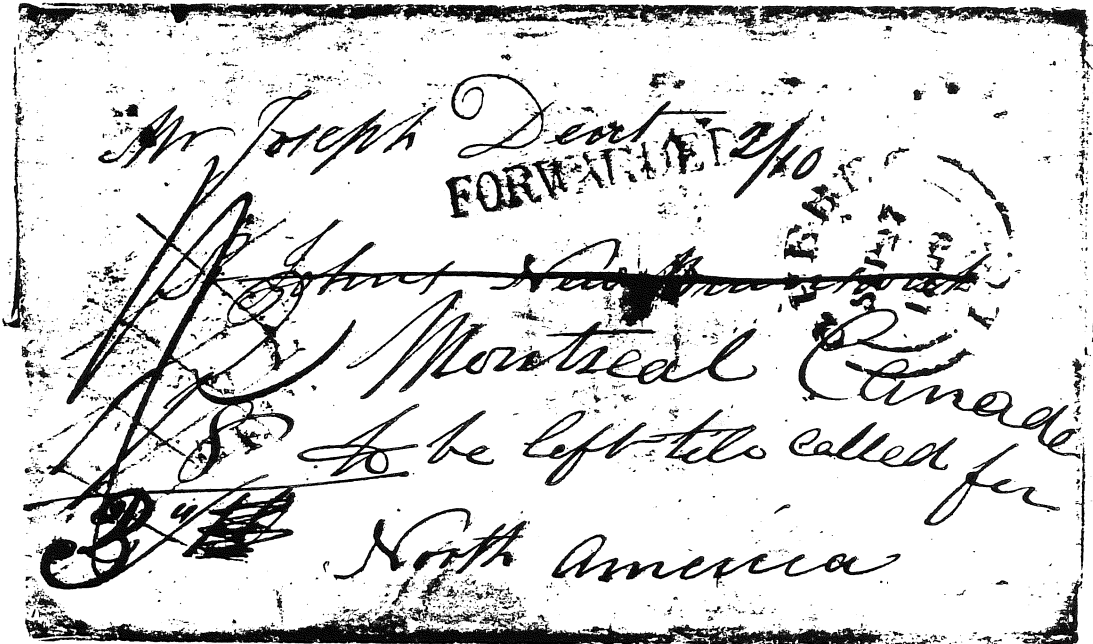 Mr Joseph Dent 2/10
FORWARDED
St Johns New Brunswick
Montreal Canada
to be left till called for
North America